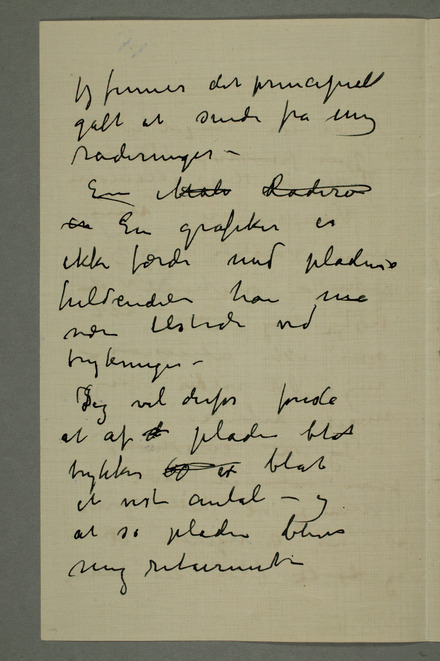 Jeg finner det principielt
galt at sende fra mig
raderinger –
En Radere
en En grafiker er
ikke færdi med pladens
han
være tilstede ved
trykningen –
Jeg vil derfor
at af pladen blot
trykkes blot
et vist antal – og
at så pladen blive
mig returneret